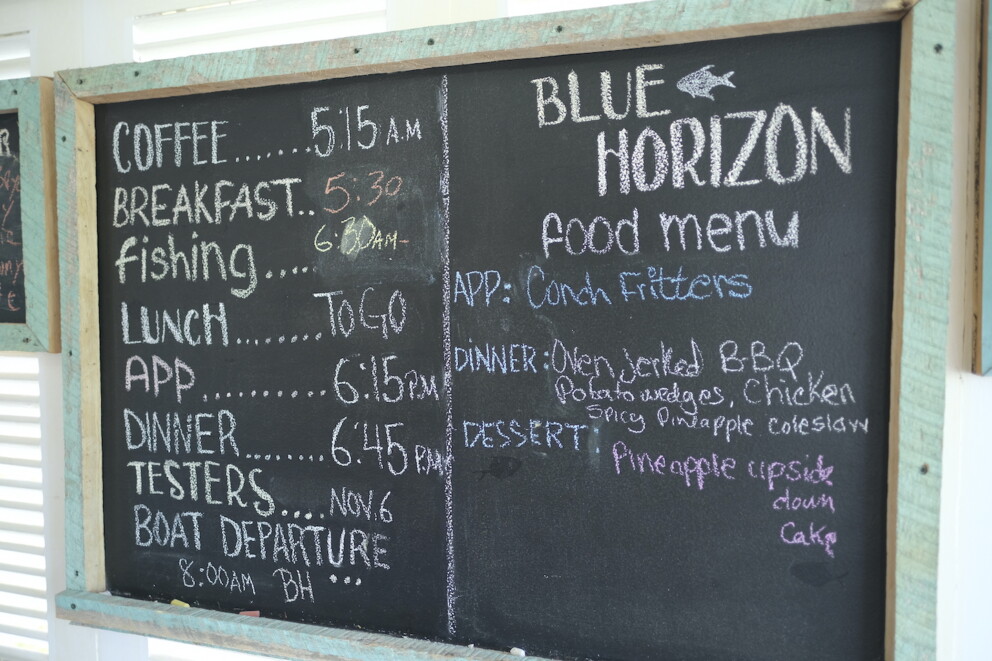 COFFEE.......5:15 A.M
BREAKFAST..5:30
fishing.....6:30AM-
LUNCH.......TOGO
APP..........6:15PM
DINNER.......6:45P.M
TESTERS....NOV.6
BOAT DEPARTURE
8:00AM BH ...
BLUE
HORIZON
food menu
APP: Conch Fritters
DINNER: Oven jerked BBQ
Potato wedges, Chicken
Spicy Pineapple coleslaw
DESSERT:
Pineapple upside
down
Cake